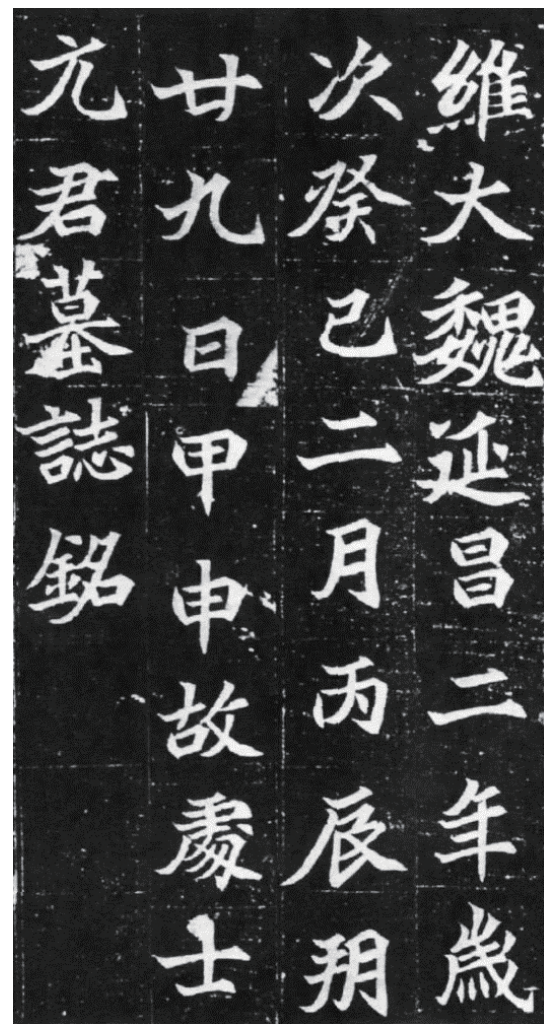 維大魏延昌二年歲
次癸巳二月丙辰朔
廿九日甲申故處士
元君墓誌銘